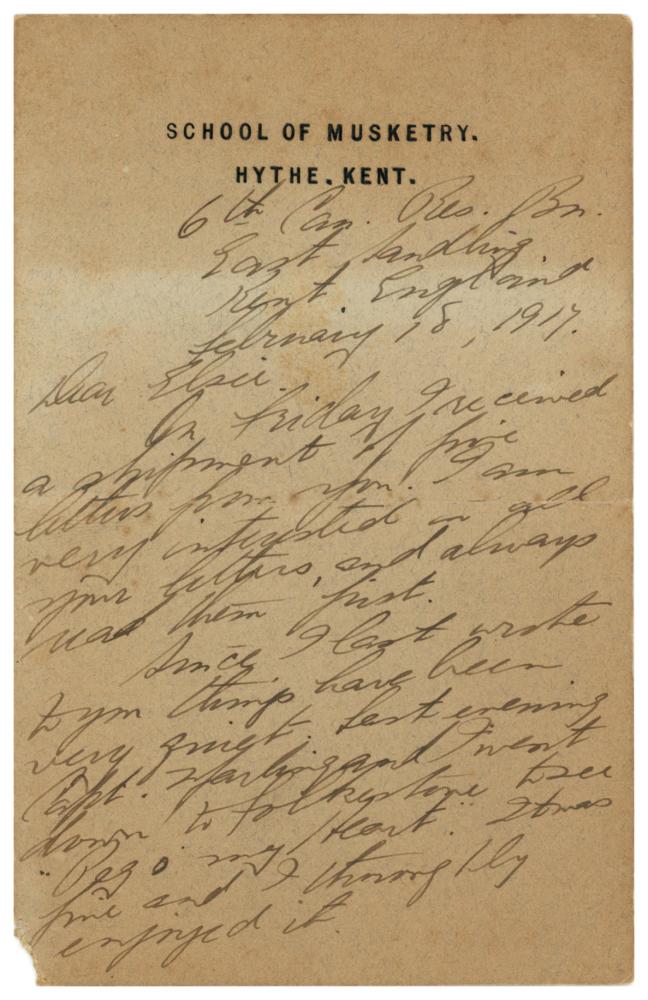 SCHOOL OF MUSKETRY.
HYTHE, KENT.
6th Can. Res. Bn.
East Sandling
Kent England
February 18, 1917.
Dear Elsie.
On Friday I received
a shipment of five
letters from you. I am
very interested in all
your letters, and always
read them first.
Since I last wrote
to you things have been
very quiet. Last evening
Capt. and I went
down to Folkestone to see
"Peg o my Heart. It was
fine and I thoroughly
enjoyed it.